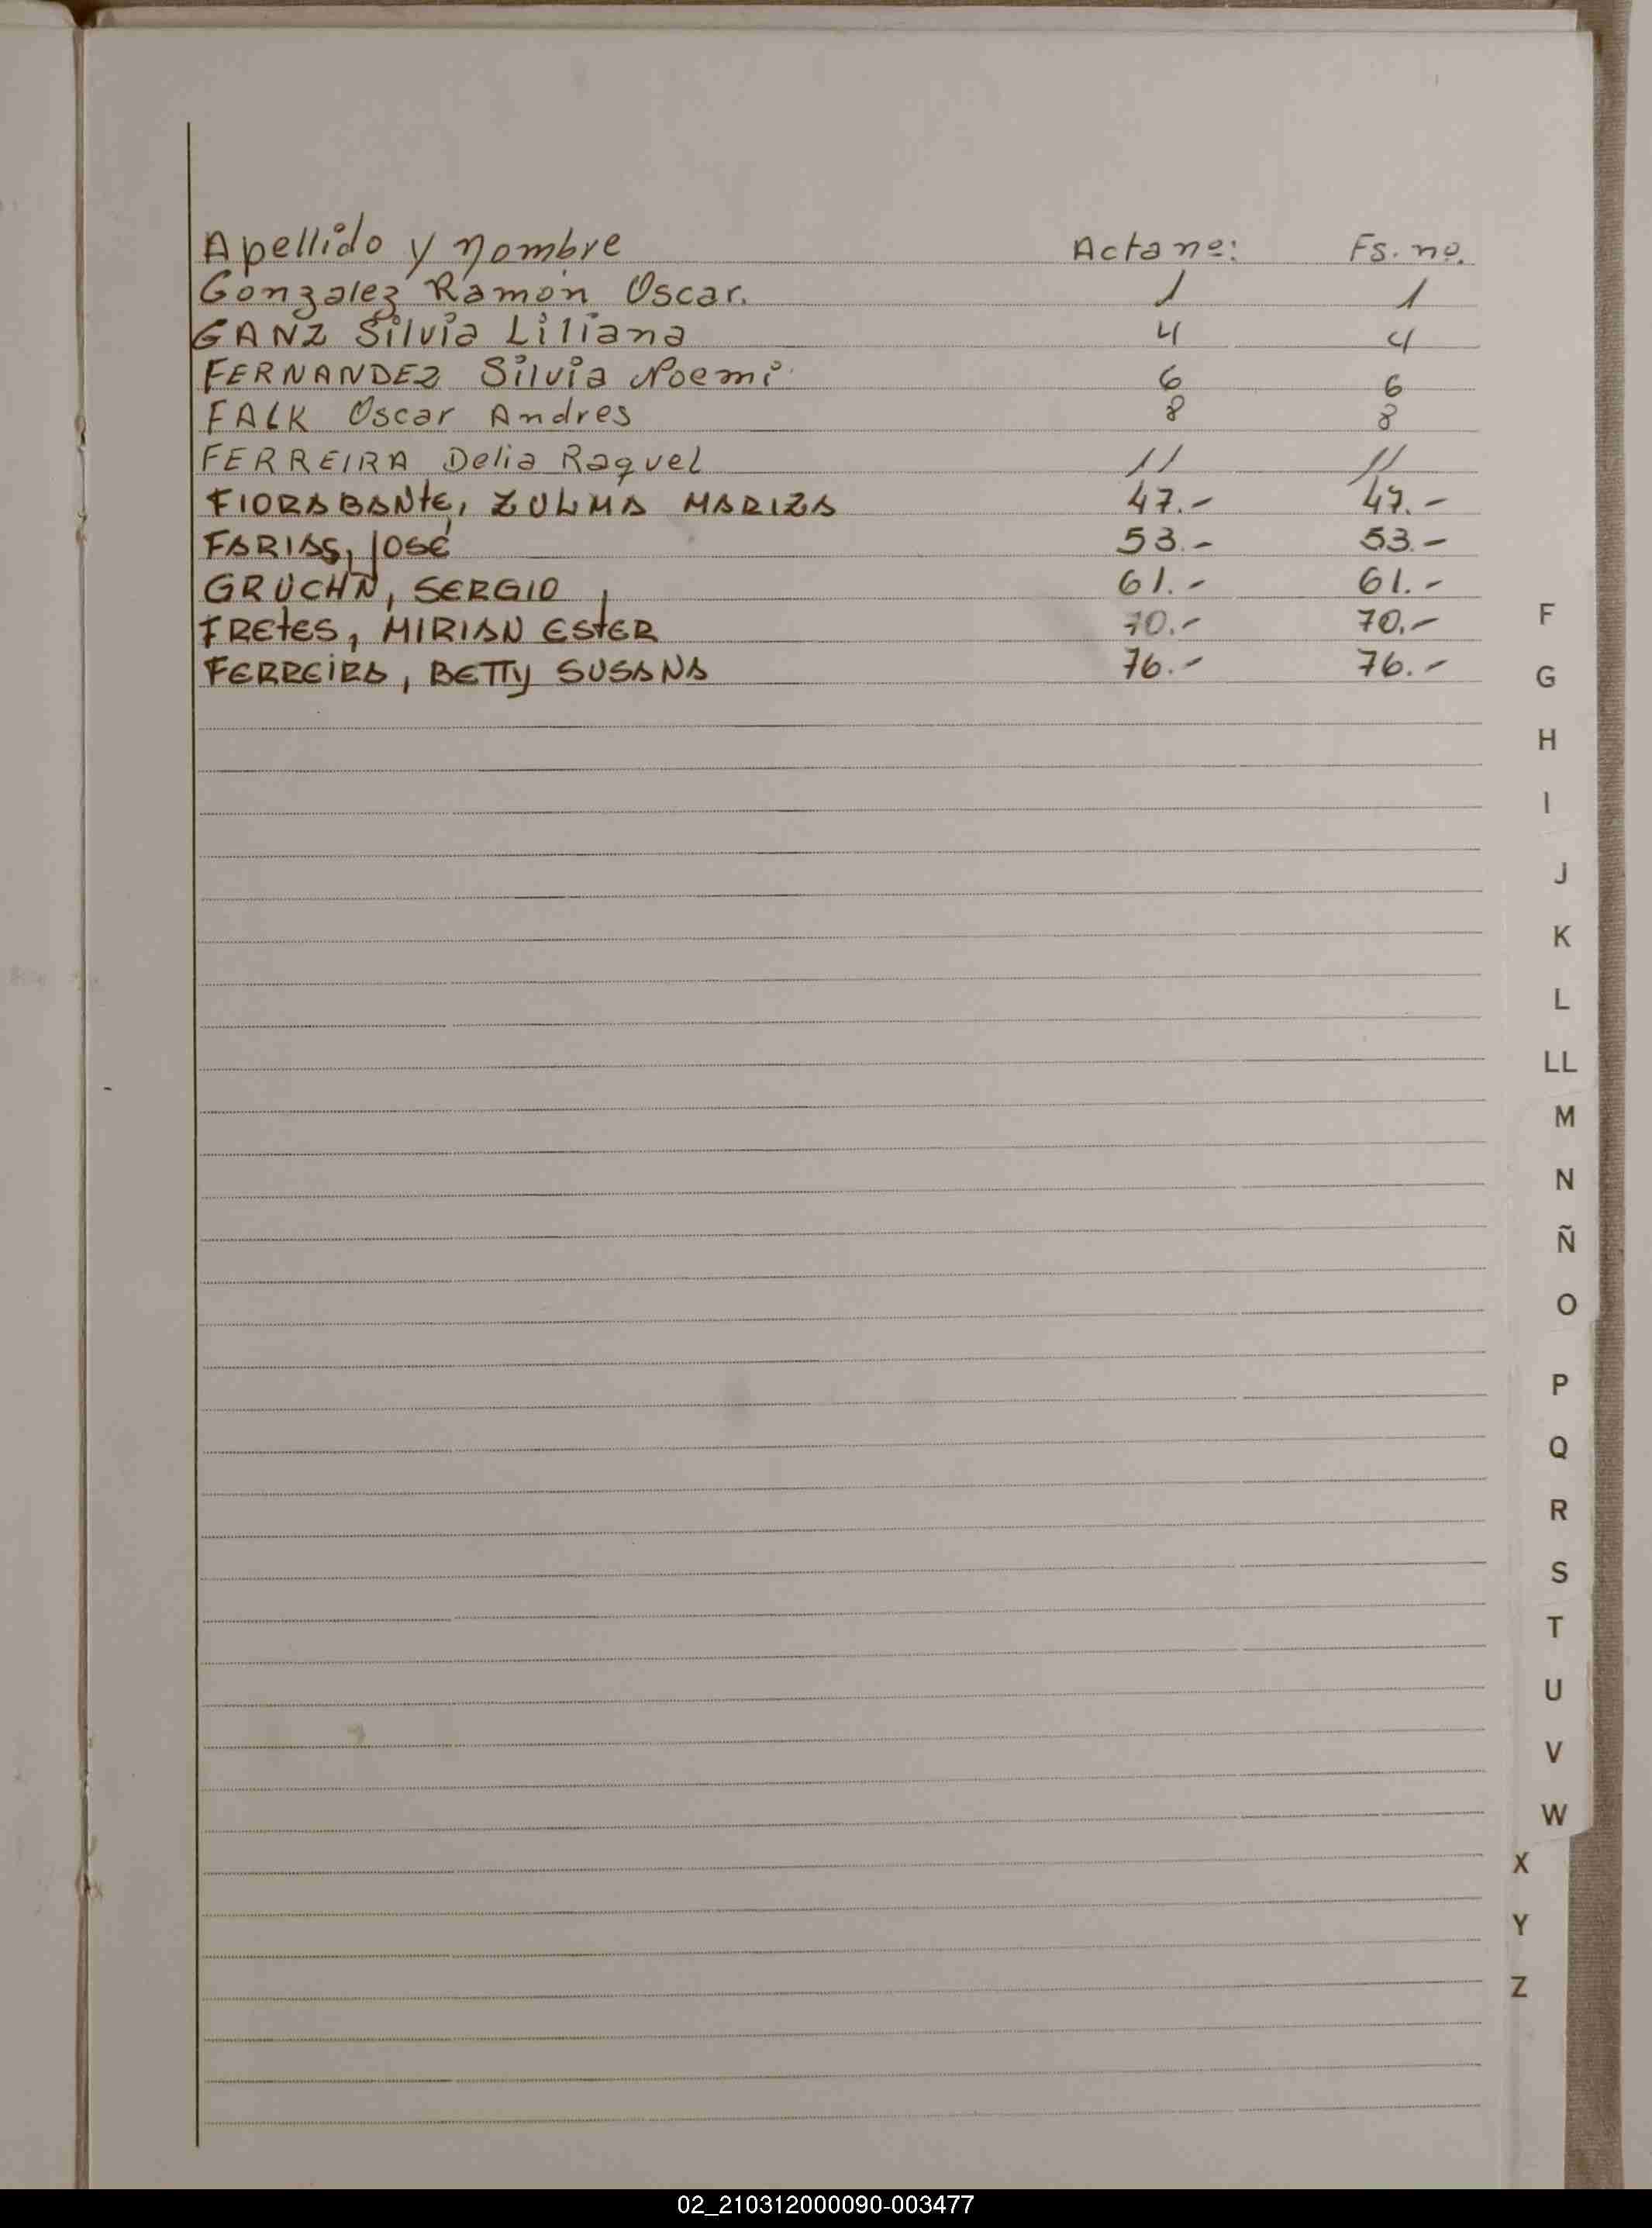 Apellido y nombre Acta nº: Fs. nº.
Gonzalez Ramón Oscar. 1 1
GANZ Silvia Liliana 4 4
FERNANDEZ Silvia Noemi 6 6
FALK Oscar Andres 8 8
FERREIRA Delia Raquel 11 11
FIORABANtE, ZULMA MARIZA 47.- 47.-
FARIAS, JOSÉ 53.- 53.-
GRUCHN, SERGIO 61.- 61.-
FREtES, MIRIAN EStER 70.- 70.-
FERREIRA, BETTy SUSANA 76.- 76.-
F
G
H
I
J
K
L
LL
M
N
Ñ
O
P
Q
R
S
T
U
V
W
X
Y
Z
02_210312000090-003477